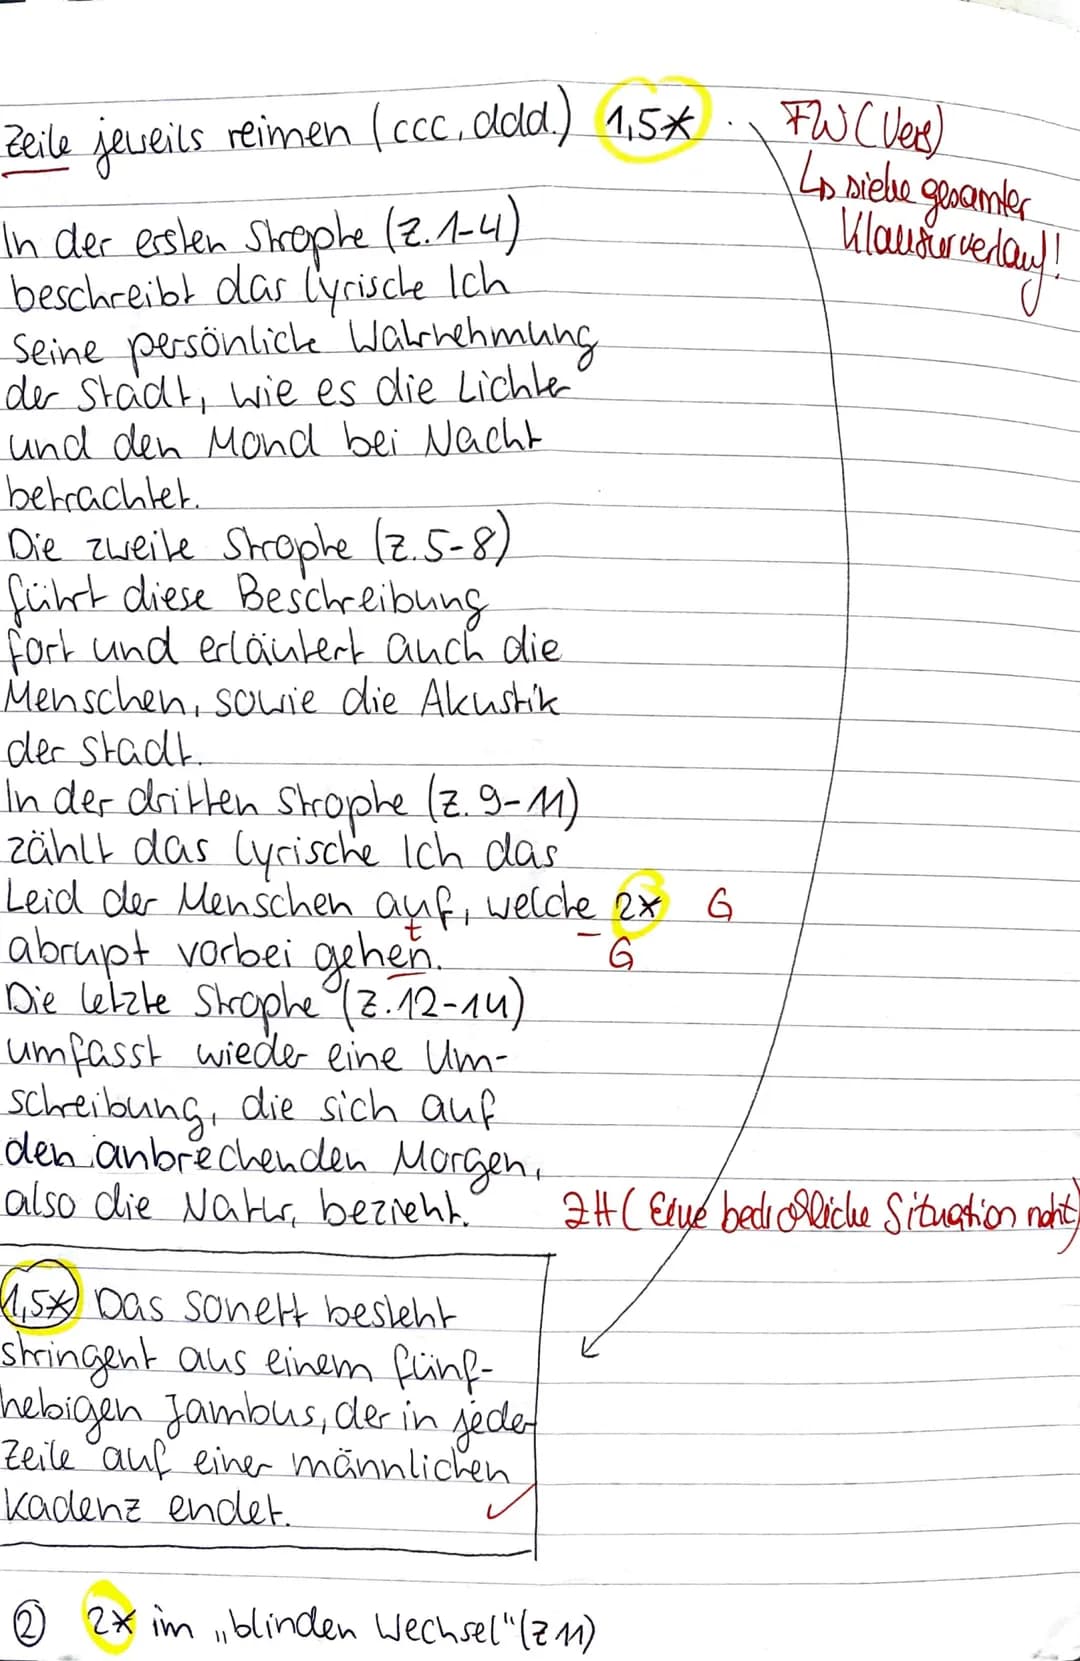 Zeile jeweils reimen (ccc, ddd.) 1,5*
FW (Vers)
↳ siehe gesamter
Klausurverlauf!
In der ersten Strophe (Z.1-4)
beschreibt das lyrische Ich
seine persönliche Wahrnehmung
der Stadt, wie es die Lichter
und den Mond bei Nacht
betrachtet.
Die zweite Strophe (Z.5-8)
führt diese Beschreibung
fort und erläutert auch die
Menschen, sowie die Akustik
der Stadt.
In der dritten Strophe (Z.9-11)
zählt das lyrische Ich das
Leid der Menschen auf, welche 2* G
abrupt vorbei gehen. t G
Die letzte Strophe (Z.12-14)
umfasst wieder eine Um-
schreibung, die sich auf
den anbrechenden Morgen,
also die Natur, bezieht.
ZH (Eine bedrohliche Situation naht)
1,5* Das Sonett besteht
stringent aus einem fünf-
hebigen Jambus, der in jeder
Zeile auf einer männlichen
Kadenz endet. ✓
② 2* im „blinden Wechsel" (Z 11)